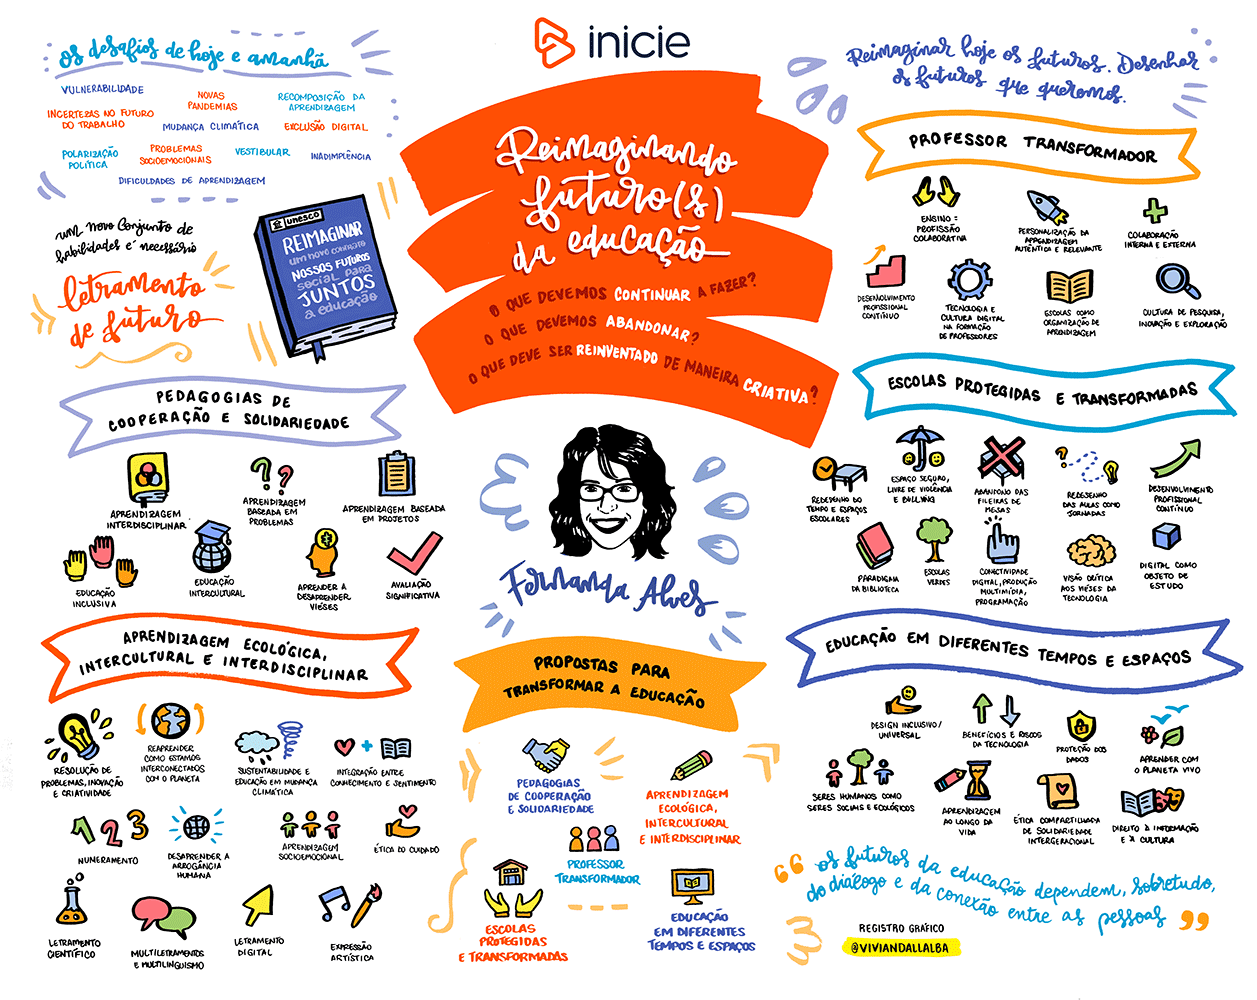 inicie
Reimaginando
futuro(s)
da educação
O QUE DEVEMOS CONTINUAR A FAZER?
O QUE DEVEMOS ABANDONAR?
O QUE DEVE SER REINVENTADO DE MANEIRA CRIATIVA?
Fernanda Alves
os desafios de hoje e amanhã
VULNERABILIDADE
NOVAS
PANDEMIAS
RECOMPOSIÇÃO DA
APRENDIZAGEM
INCERTEZAS NO FUTURO
DO TRABALHO
MUDANÇA CLIMÁTICA
EXCLUSÃO DIGITAL
POLARIZAÇÃO
POLÍTICA
PROBLEMAS
SOCIOEMOCIONAIS
VESTIBULAR
INADIMPLÊNCIA
DIFICULDADES DE APRENDIZAGEM
um novo conjunto de
habilidades é necessário
letramento
de futuro
unesco
REIMAGINAR
um novo contrato
NOSSOS FUTUROS
social para
JUNTOS
a educação
PEDAGOGIAS DE
COOPERAÇÃO E SOLIDARIEDADE
APRENDIZAGEM
INTERDISCIPLINAR
APRENDIZAGEM
BASEADA EM
PROBLEMAS
APRENDIZAGEM BASEADA
EM PROJETOS
EDUCAÇÃO
INCLUSIVA
EDUCAÇÃO
INTERCULTURAL
APRENDER A
DESAPRENDER
VIESES
AVALIAÇÃO
SIGNIFICATIVA
APRENDIZAGEM ECOLÓGICA,
INTERCULTURAL E INTERDISCIPLINAR
RESOLUÇÃO DE
PROBLEMAS, INOVAÇÃO
E CRIATIVIDADE
REAPRENDER
COMO ESTAMOS
INTERCONECTADOS
COM O PLANETA
SUSTENTABILIDADE E
EDUCAÇÃO EM MUDANÇA
CLIMÁTICA
INTEGRAÇÃO ENTRE
CONHECIMENTO E SENTIMENTO
123
NUMERAMENTO
DESAPRENDER A
ARROGÂNCIA
HUMANA
APRENDIZAGEM
SOCIOEMOCIONAL
ÉTICA DO CUIDADO
LETRAMENTO
CIENTÍFICO
MULTILETRAMENTOS
E MULTILINGUISMO
LETRAMENTO
DIGITAL
EXPRESSÃO
ARTÍSTICA
PROPOSTAS PARA
TRANSFORMAR A EDUCAÇÃO
PEDAGOGIAS
DE COOPERAÇÃO
E SOLIDARIEDADE
APRENDIZAGEM
ECOLÓGICA,
INTERCULTURAL
E INTERDISCIPLINAR
PROFESSOR
TRANSFORMADOR
ESCOLAS
PROTEGIDAS
E TRANSFORMADAS
EDUCAÇÃO
EM DIFERENTES
TEMPOS E ESPAÇOS
Reimaginar hoje os futuros. Desenhar
os futuros que queremos.
PROFESSOR TRANSFORMADOR
ENSINO =
PROFISSÃO
COLABORATIVA
PERSONALIZAÇÃO DA
APRENDIZAGEM
AUTÊNTICA E RELEVANTE
COLABORAÇÃO
INTERNA E EXTERNA
DESENVOLVIMENTO
PROFISSIONAL
CONTÍNUO
TECNOLOGIA E
CULTURA DIGITAL
NA FORMAÇÃO
DE PROFESSORES
ESCOLAS COMO
ORGANIZAÇÃO DE
APRENDIZAGEM
CULTURA DE PESQUISA,
INOVAÇÃO E EXPLORAÇÃO
ESCOLAS PROTEGIDAS E TRANSFORMADAS
REDESENHO DO
TEMPO E ESPAÇOS
ESCOLARES
ESPAÇO SEGURO,
LIVRE DE VIOLÊNCIA
E BULLYING
ABANDONO DAS
FILEIRAS DE
MESAS
REDESENHO
DAS AULAS COMO
JORNADAS
DESENVOLVIMENTO
PROFISSIONAL
CONTÍNUO
PARADIGMA
DA BIBLIOTECA
ESCOLAS
VERDES
CONECTIVIDADE
DIGITAL, PRODUÇÃO
MULTIMÍDIA,
PROGRAMAÇÃO
VISÃO CRÍTICA
AOS VIESES DA
TECNOLOGIA
DIGITAL COMO
OBJETO DE
ESTUDO
EDUCAÇÃO EM DIFERENTES TEMPOS E ESPAÇOS
DESIGN INCLUSIVO/
UNIVERSAL
BENEFÍCIOS E RISCOS
DA TECNOLOGIA
PROTEÇÃO DOS
DADOS
APRENDER COM
O PLANETA VIVO
SERES HUMANOS COMO
SERES SOCIAIS E ECOLÓGICOS
APRENDIZAGEM
AO LONGO DA
VIDA
ÉTICA COMPARTILHADA
DE SOLIDARIEDADE
INTERGERACIONAL
DIREITO À INFORMAÇÃO
E À CULTURA
“os futuros da educação dependem, sobretudo,
do diálogo e da conexão entre as pessoas”
REGISTRO GRÁFICO
@VIVIANDALLALBA